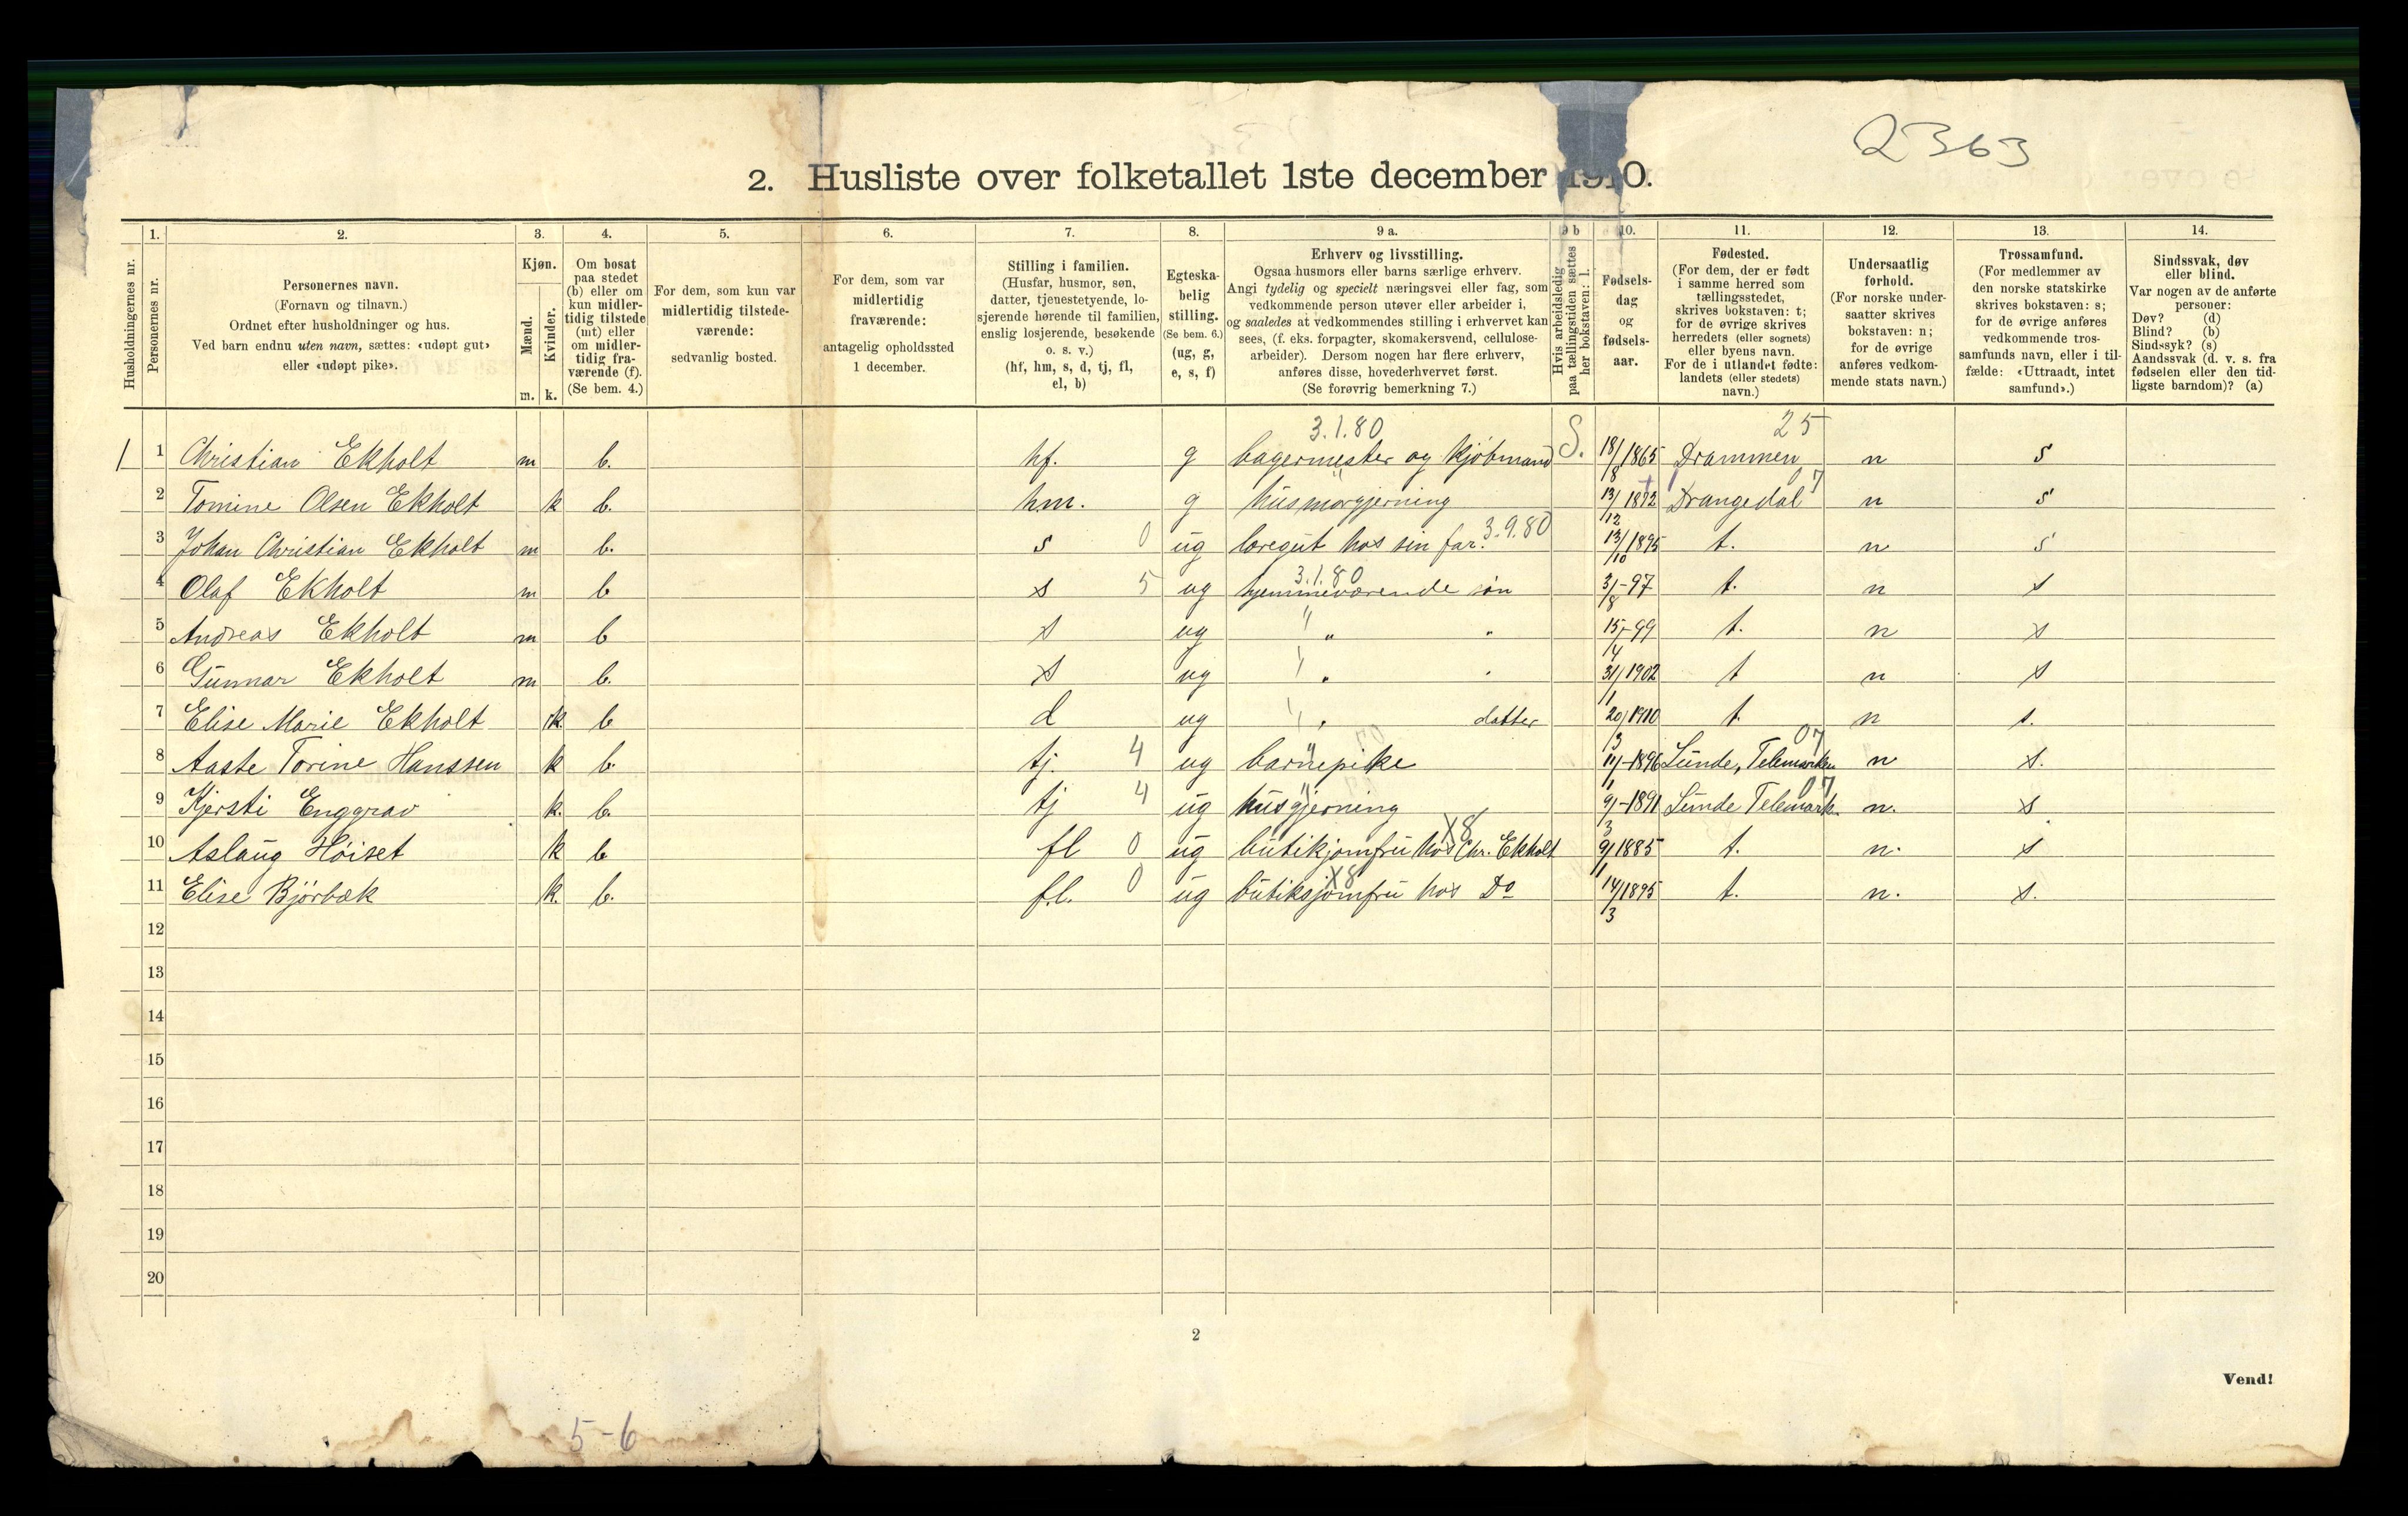 2363
2. Husliste over folketallet 1ste december 1910.
Husholdningernes nr.
1. Personernes nr.
2. Personernes navn.
(Fornavn og tilnavn.)
Ordnet efter husholdninger og hus.
Ved barn endnu uten navn, sættes: «udøpt gut»
eller «udøpt pike».
3. Kjøn.
Mænd. Kvinder.
m. k.
4. Om bosat
paa stedet
(b) eller om
kun midler-
tidig tilstede
(mt) eller
om midler-
tidig fra-
værende (f).
(Se bem. 4.)
5. For dem, som kun var
midlertidig tilstede-
værende:
sedvanlig bosted.
6. For dem, som var
midlertidig
fraværende:
antagelig opholdssted
1 december.
7. Stilling i familien.
(Husfar, husmor, søn,
datter, tjenestetyende, lo-
sjerende hørende til familien,
enslig losjerende, besøkende
o. s. v.)
(hf, hm, s, d, tj, fl,
el, b)
8. Egteska-
belig
stilling.
(Se bem. 6.)
(ug, g,
e, s, f)
9 a. Erhverv og livsstilling.
Ogsaa husmors eller barns særlige erhverv.
Angi tydelig og specielt næringsvei eller fag, som
vedkommende person utøver eller arbeider i,
og saaledes at vedkommendes stilling i erhvervet kan
sees, (f. eks. forpagter, skomakersvend, cellulose-
arbeider). Dersom nogen har flere erhverv,
anføres disse, hovederhvervet først.
(Se forøvrig bemerkning 7.)
9 b Hvis arbeidsledig
paa tællingstiden sættes
her bokstaven: l.
10. Fødsels-
dag
og
fødsels-
aar.
11. Fødested.
(For dem, der er født
i samme herred som
tællingsstedet,
skrives bokstaven: t;
for de øvrige skrives
herredets (eller sognets)
eller byens navn.
For de i utlandet fødte:
landets (eller stedets)
navn.)
12. Undersaatlig
forhold.
(For norske under-
saatter skrives
bokstaven: n;
for de øvrige
anføres vedkom-
mende stats navn.)
13. Trossamfund.
(For medlemmer av
den norske statskirke
skrives bokstaven: s;
for de øvrige anføres
vedkommende tros-
samfunds navn, eller i til-
fælde: «Uttraadt, intet
samfund».)
14. Sindssvak, døv
eller blind.
Var nogen av de anførte
personer:
Døv? (d)
Blind? (b)
Sindssyk? (s)
Aandssvak (d. v. s. fra
fødselen eller den tid-
ligste barndom)? (a)
3.1.80 25
1 1 Christian Ekholt m b. hf. g bagermester og kjöbmand S. 18/8 1865 Drammen n s
2 Tomine Olsen Ekholt k b. hm. g husmorgjerning 13/12 1872 Drangedal 07 n s
3 Johan Christian Ekholt m b. s 0 ug læregut hos sin far. 3.9.80 13/10 1895 t. n s
3.1.80
4 Olaf Ekholt m b s 5 ug hjemmeværende søn 3/8-97 t. n s
5 Andreas Ekholt m b s ug " " " 15/4-99 t. n s
6 Gunnar Ekholt m b. s ug " " " 31/1 1902 t n s
7 Elise Marie Ekholt k b d ug " " datter 20/3 1910 t n s.
8 Aaste Torine Hanssen k b. tj. 4 ug barnepike 11/1-1896 Lunde, Telemarken 07 n s.
9 Kjersti Enggrav k. b. tj 4 ug husgjerning 9/3-1891 Lunde Telemark. 07 n. s
10 Aslaug Höiset k b fl 0 ug butikjomfru hos Chr. Ekholt X8 9/11 1885 t. n. s
11 Elise Björbæk k. b. f.l. 0 ug butiksjomfru hos Do X8 14/3 1895 t. n. s.
12
13
14
15
16
17
18
19
20
2
Vend!
5-6